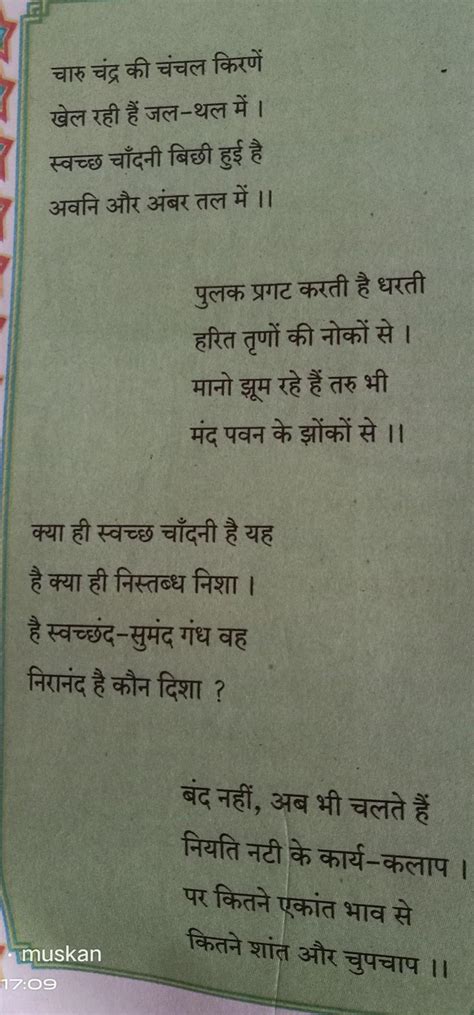 चारु चंद्र की चंचल किरणें
खेल रही हैं जल-थल में ।
स्वच्छ चाँदनी बिछी हुई है
अवनि और अंबर तल में ।।
पुलक प्रगट करती है धरती
हरित तृणों की नोकों से ।
मानो झूम रहे हैं तरु भी
मंद पवन के झोंकों से ।।
क्या ही स्वच्छ चाँदनी है यह
है क्या ही निस्तब्ध निशा ।
है स्वच्छंद-सुमंद गंध वह
निरानंद है कौन दिशा ?
बंद नहीं, अब भी चलते हैं
नियति नटी के कार्य-कलाप ।
पर कितने एकांत भाव से
कितने शांत और चुपचाप ।।
muskan
17:09